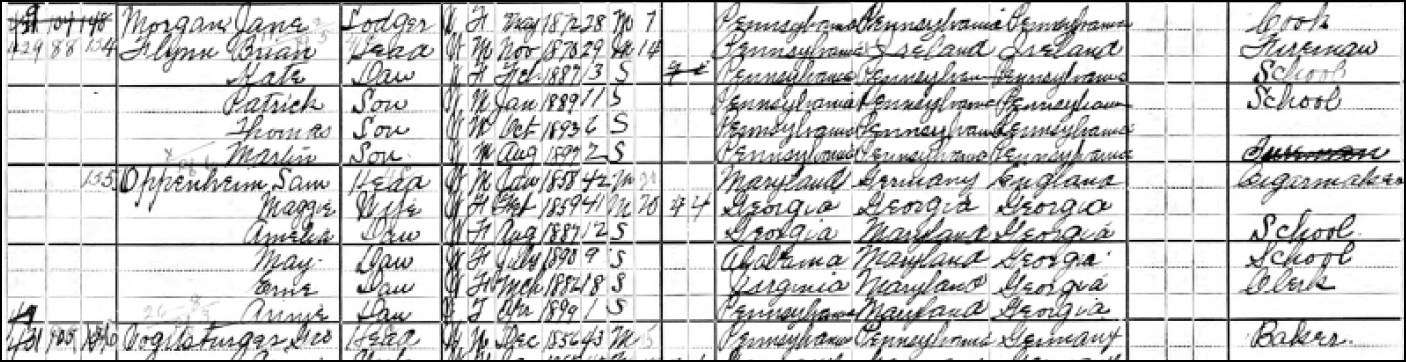 Morgan, Jane Lodger W F May 1872 28 M 7 Pennsylvania Pennsylvania Pennsylvania Cook
429 88 154 Flynn Brian Head W M Nov 1870 29 M 14 Pennsylvania Ireland Ireland Fireman
Kate Daw W F Feb 1887 13 S Pennsylvania Pennsylvania Pennsylvania School
Patrick Son W M Jan 1889 11 S Pennsylvania Pennsylvania Pennsylvania School
Thomas Son W M Oct 1893 6 S Pennsylvania Pennsylvania Pennsylvania
Martin Son W M Aug 1897 2 S Pennsylvania Pennsylvania Pennsylvania
155 Oppenheim, Sam Head W M Jan 1858 42 M 20 Maryland Germany England Cigarmaker
Maggie Wife W F Feb 1859 41 M 20 4 4 Georgia Georgia Georgia
Amelia Daw W F Aug 1887 12 S Georgia Maryland Georgia School
May Daw W F July 1890 9 S Alabama Maryland Georgia School
Daw W F Mch 1882 18 S Virginia Maryland Georgia Clerk
Annie Daw W F Apr 1899 1 S Pennsylvania Maryland Georgia
Geo Head W M Dec 1856 43 M Pennsylvania Pennsylvania Germany Baker